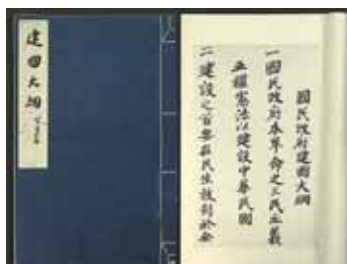 建國大綱
國民政府建國大綱
一國民政府本革命之三民主義
五權憲法以建設中華民國
二建設之首要在民生故對於全